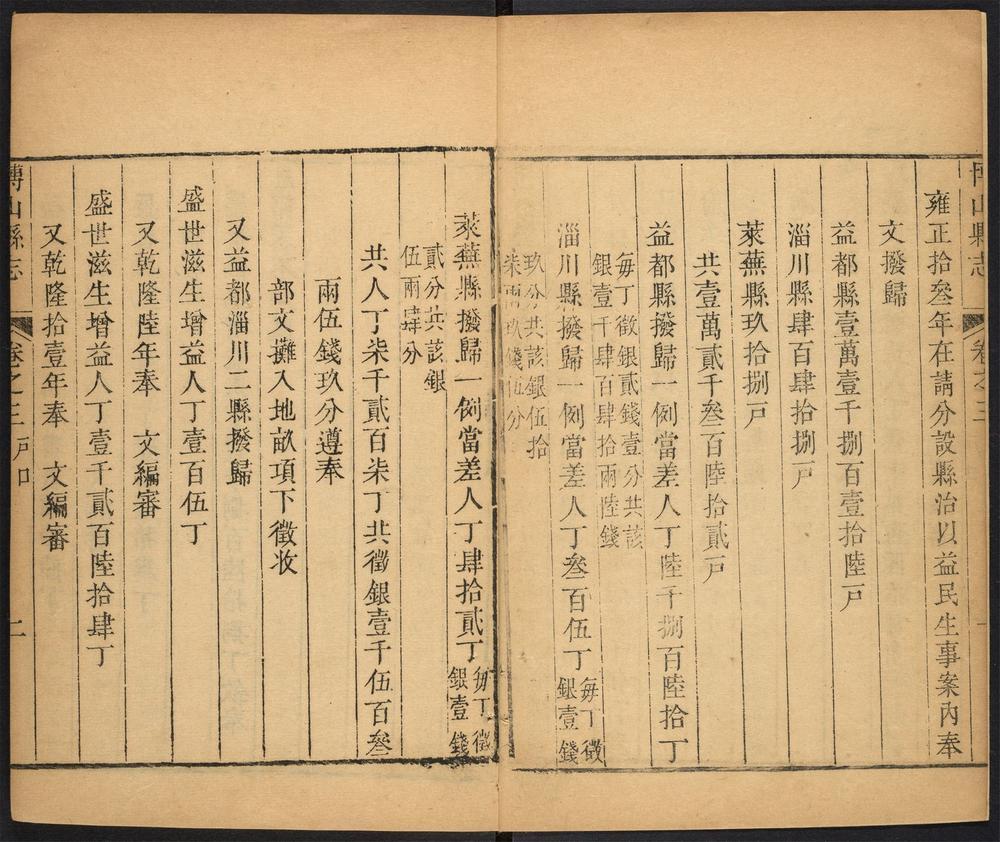 博山縣志 卷之三 一
雍正拾叁年在請分設縣治以益民生事案內奉
文撥歸
益都縣壹萬壹千捌百壹拾陸戶
淄川縣肆百肆拾捌戶
萊蕪縣玖拾捌戶
共壹萬貳千叁百陸拾貳戶
益都縣撥歸一例當差人丁陸千捌百陸拾丁
每丁徵銀貳錢壹分共該
銀壹千肆百肆拾兩陸錢
淄川縣撥歸一例當差人丁叁百伍丁
每丁徵
銀壹錢
玖分共該銀伍拾
柒兩玖錢伍分
萊蕪縣撥歸一例當差人丁肆拾貳丁
每丁徵
銀壹錢
貳分共該銀
伍兩肆分
共人丁柒千貳百柒丁共徵銀壹千伍百叁
兩伍錢玖分遵奉
部文攤入地畝項下徵收
又益都淄川二縣撥歸
盛世滋生增益人丁壹百伍丁
又乾隆陸年奉 文編審
盛世滋生增益人丁壹千貳百陸拾肆丁
又乾隆拾壹年奉 文編審
博山縣志 卷之三 戶口 二